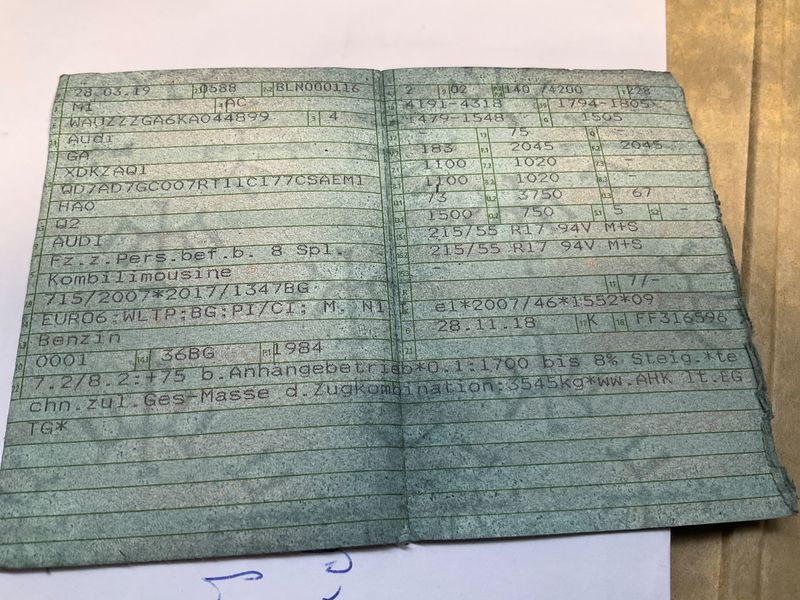 28.03.19 0588 BLN000116
M1 AC
WAUZZZGA6KA044899 4 -
Audi
GA
XDKZAQ1
QD7AD7GC007RT11C177CSAEM1
HAO
W2
AUDI
Fz.z.Pers.bef.b. 8 Spl.
Kombilimousine
715/2007*2017/1347BG
EURO6;WLTP;BG;PI/CI; M, N1 I
Benzin
0001 36BG 1984
2 02 140 /4200 228
4191-4318 1794-1805
1479-1548 1505
- 75 -
183 2045 - 2045
1100 1020 -
1100 1020 -
73 3750 67
1500 750 5 -
215/55 R17 94V M+S
215/55 R17 94V M+S
-
- 7/-
e1*2007/46*1552*09
28.11.18 K FF316596
7.2/8.2:+75 b.Anhängebetrieb*O.1:1700 bis 8% Steig.*te
chn.zul.Ges-Masse d.Zugkombination:3545kg*ww.AHK lt.EG
TG*